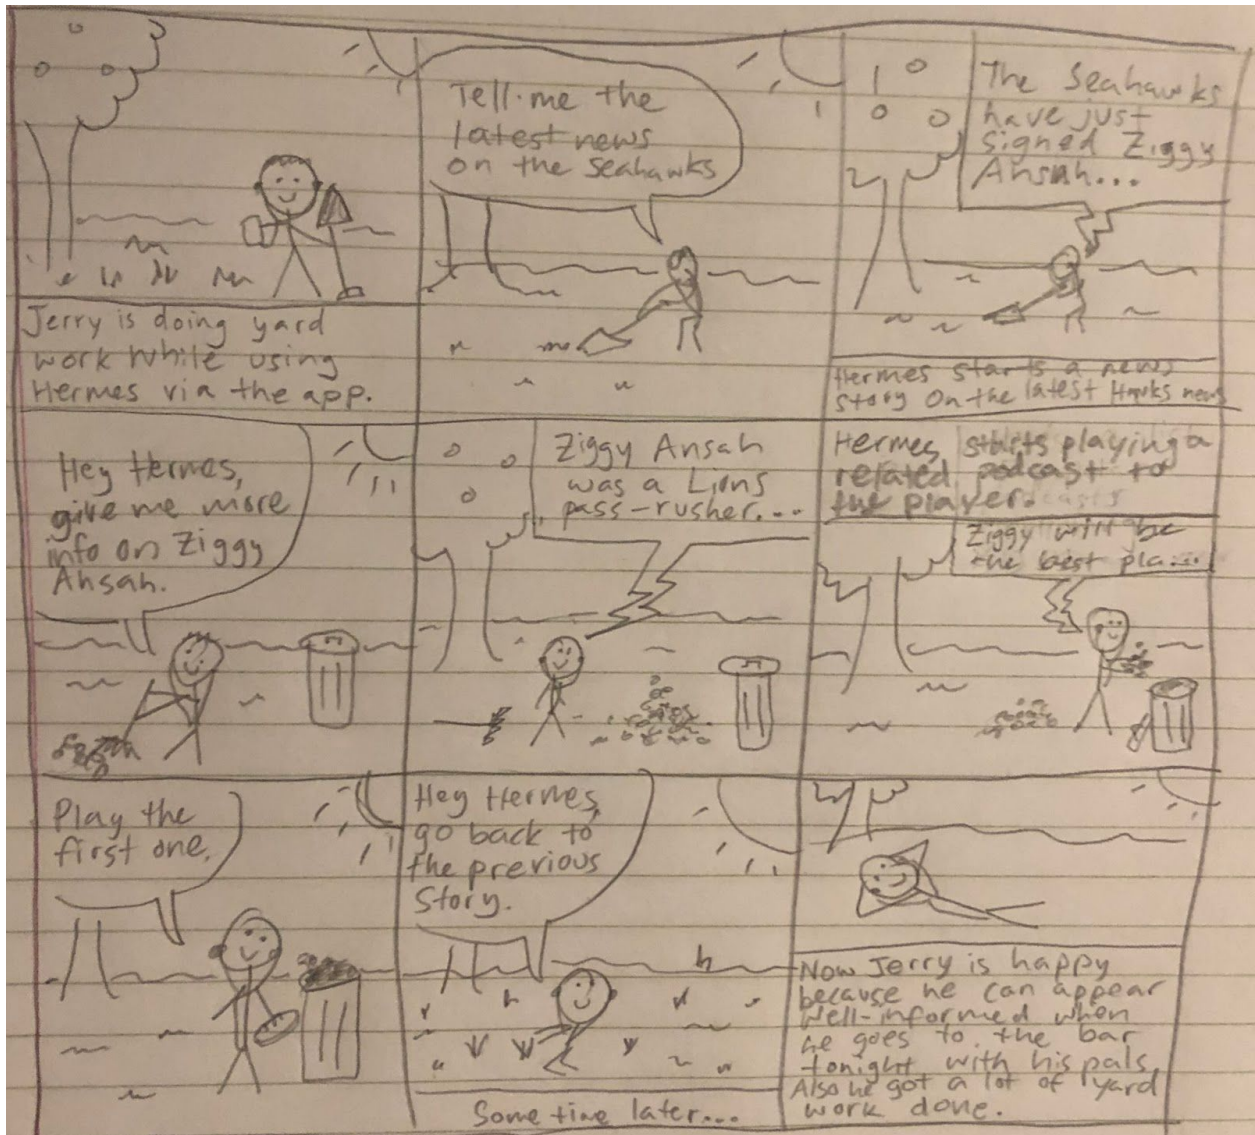 Jerry is doing yard
work while using
Hermes via the app.
Tell me the
latest news
on the Seahawks
The Seahawks
have just
signed Ziggy
Ansah...
Hermes starts a news
story On the latest Hawks news
Hey Hermes,
give me more
info on Ziggy
Ansah.
Ziggy Ansah
was a Lions
pass-rusher....
Hermes starts playing a
related podcast to
the player.
Ziggy will be
the best pla....
Play the
first one.
Hey Hermes,
go back to
the previous
Story.
Some time later...
Now Jerry is happy
because he can appear
Well-informed when
he goes to the bar
tonight with his pals,
Also he got a lot of yard
work done.